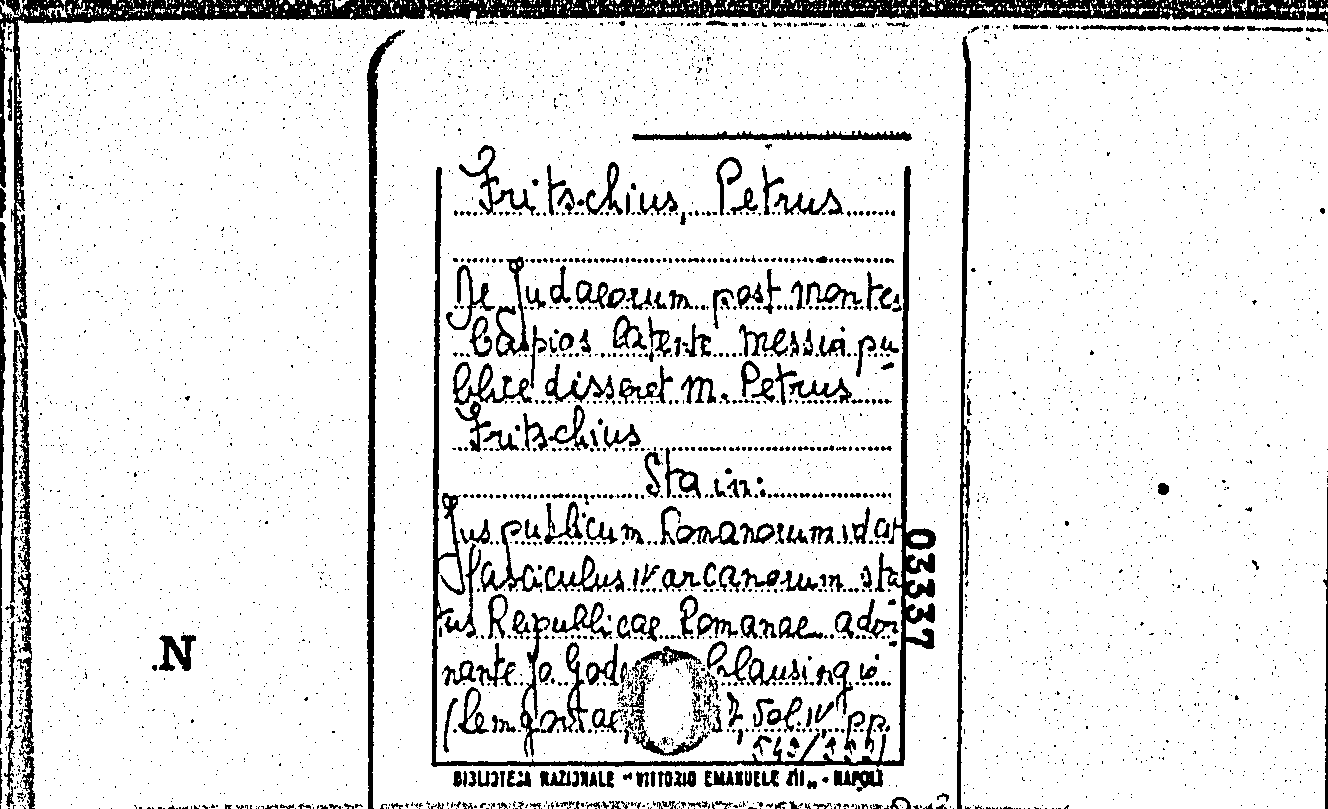 Fritschius, Petrus
De Judaeorum post montes
Caspios latente messia pu-
blice disseret m. Petrus
Fritschius
Sta in:
Jus publicum Romanorum
fasciculus IV arcanorum sta
tus Reipublicae Romanae ador
nante Jo Clausingio
(Lemgoviae, Vol. IV pp.
03337
.N
BIBLIOTECA NAZIONALE "VITTORIO EMANUELE III„ - NAPOLI